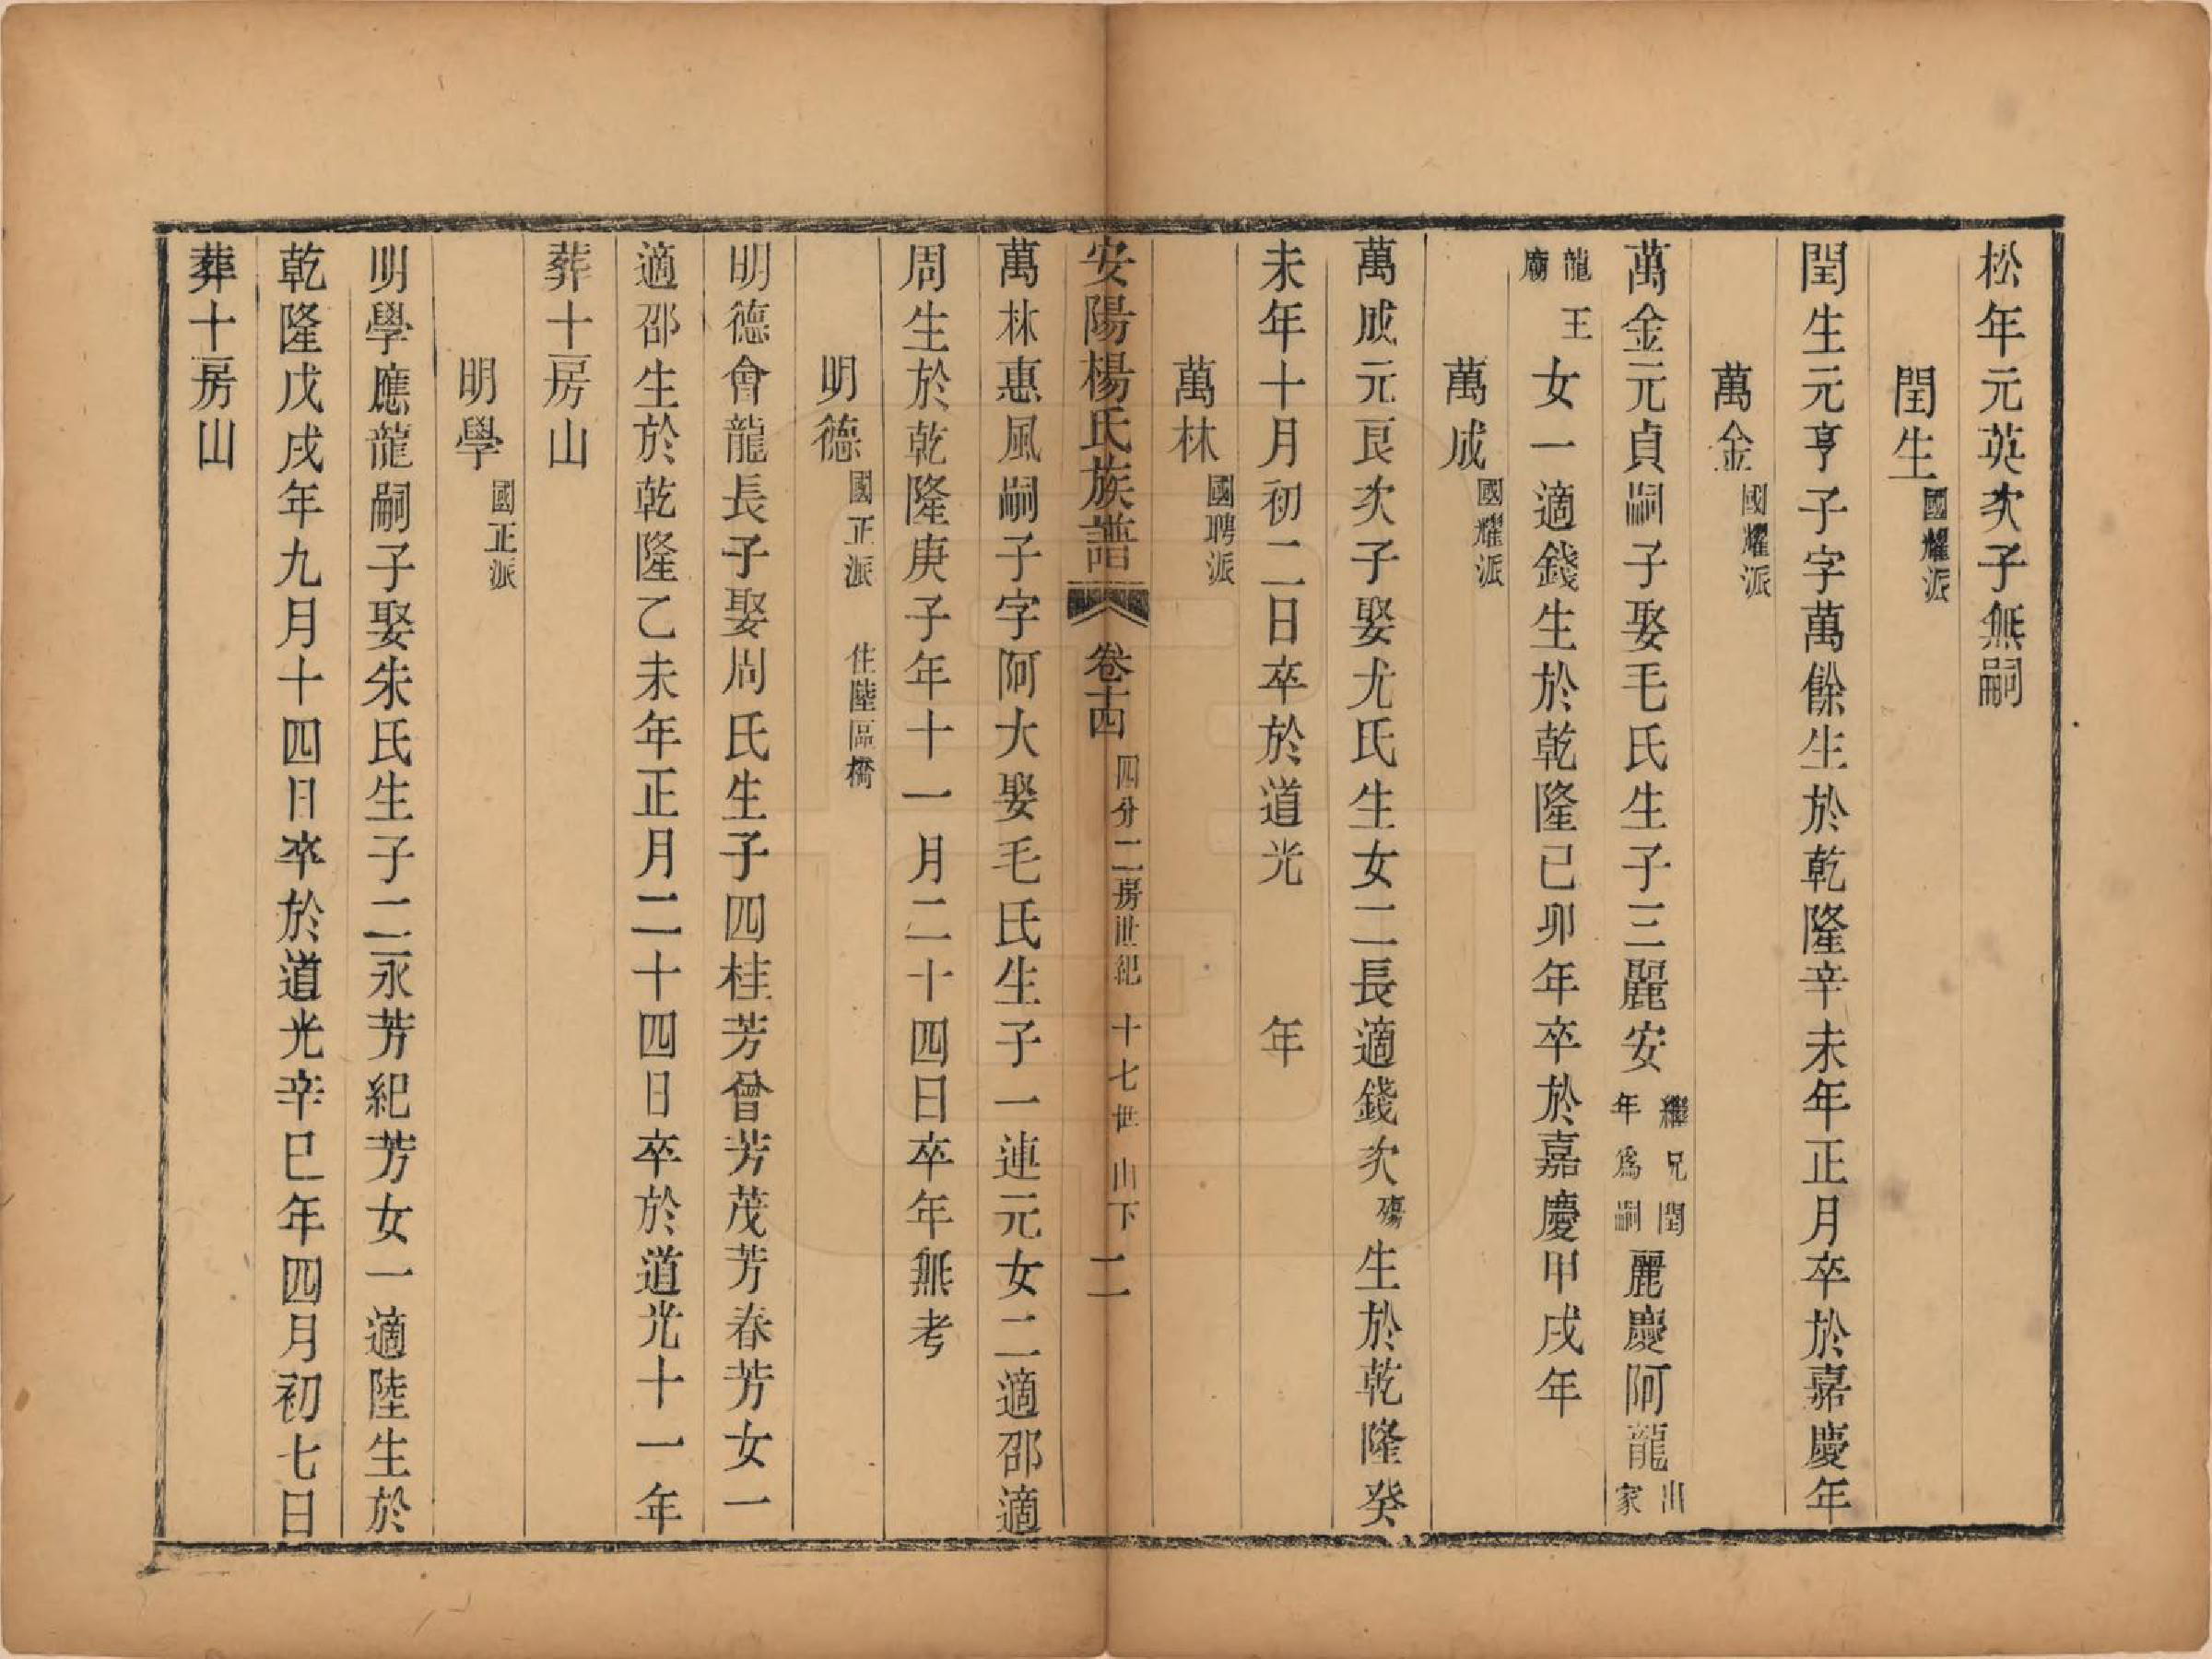 松年元英次子無嗣
閏生國耀派
閏生元亨子字萬餘生於乾隆辛未年正月卒於嘉慶年
萬金國耀派
萬金元貞嗣子娶毛氏生子三麗安繼兄閏年爲嗣麗慶阿龍出家
龍王廟女一適錢生於乾隆己卯年卒於嘉慶甲戌年
萬成國耀派
萬成元良次子娶尤氏生女二長適錢次殤生於乾隆癸
未年十月初二日卒於道光　年
萬林國聘派
安陽楊氏族譜 卷十四 四分二房世紀 十七世 山下 二
萬林惠風嗣子字阿大娶毛氏生子一連元女二適邵適
周生於乾隆庚子年十一月二十四日卒年無考
明德國正派 住陸區橋
明德會龍長子娶周氏生子四桂芳曾芳茂芳春芳女一
適邵生於乾隆乙未年正月二十四日卒於道光十一年
葬十房山
明學國正派
明學應龍嗣子娶朱氏生子二永芳紀芳女一適陸生於
乾隆戊戌年九月十四日卒於道光辛巳年四月初七日
葬十房山